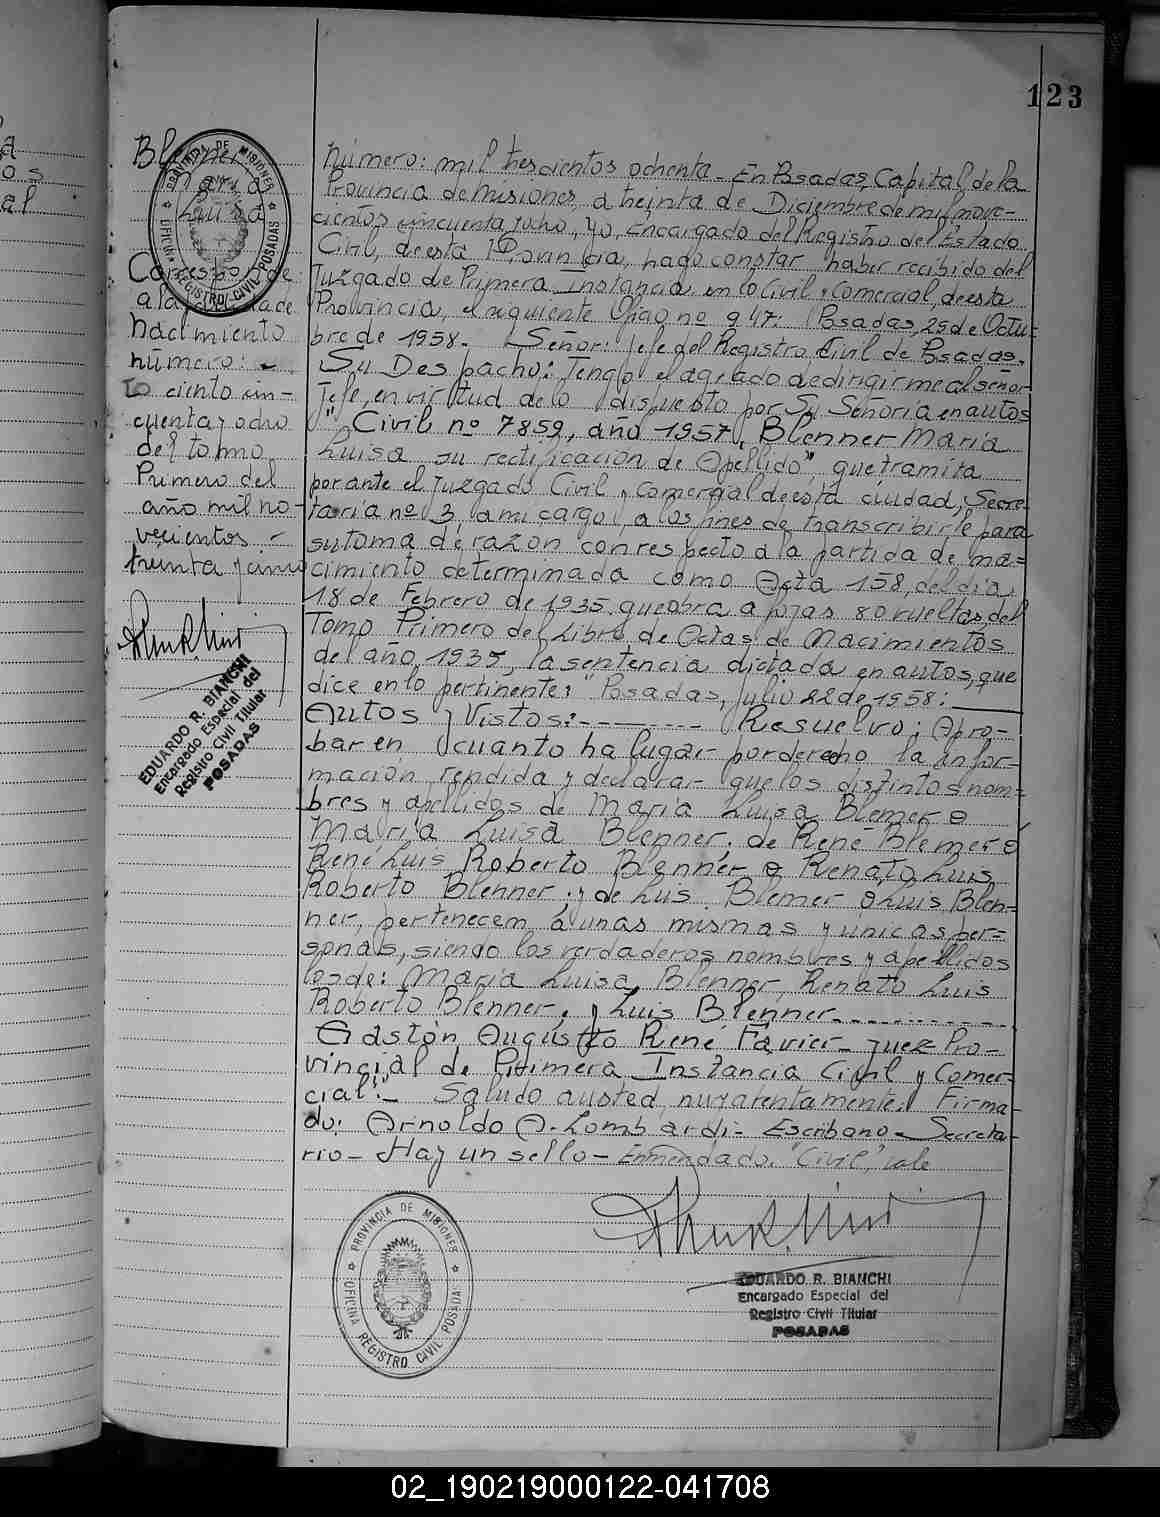 123
Blenner
María
Luisa
Corresponde
a la partida de
nacimiento
número:
ciento cin-
cuenta y ocho
del tomo
Primero del
año mil no-
vecientos
treinta y cinco
EDUARDO R. BIANCHI
Encargado Especial del
Registro Civil Titular
POSADAS
PROVINCIA DE MISIONES
OFICINA REGISTRO CIVIL POSADAS
Número: mil trescientos ochenta - En Posadas, Capital de la
Provincia de Misiones, a treinta de Diciembre de mil nove-
cientos cincuenta y ocho, yo, Encargado del Registro del Estado
Civil, de esta Provincia, hago constar haber recibido del
Juzgado de Primera Instancia en lo Civil y Comercial, de esta
Provincia, el siguiente Oficio nº 947: "Posadas, 29 de Octu-
bre de 1958. - Señor: Jefe del Registro Civil de Posadas.
Su Despacho: Tengo el agrado de dirigirme al señor
Jefe, en virtud de lo dispuesto por Su Señoría en autos
" Civil nº 7859, año 1957, Blenner María
Luisa su rectificación de Apellido" que tramita
por ante el Juzgado Civil y Comercial de esta ciudad, Secre-
taría nº 3, a mi cargo, a los fines de transcribirle para
su toma de razón con respecto a la partida de na=
cimiento determinada como Acta 158, del día
18 de Febrero de 1935 que obra a fojas 80 vueltas, del
Tomo Primero del Libro de Actas de Nacimientos
del año 1935, la sentencia dictada en autos, que
dice en lo pertinente: "Posadas, Julio 22 de 1958:
Autos y Vistos:--------- Resuelvo: Apro-
bar en cuanto ha lugar por derecho la infor-
mación rendida y declarar que los distintos nom=
bres y apellidos de María Luisa Blemer o
María Luisa Blenner; de René Blemer o
René Luis Roberto Blenner o Renato Luis
Roberto Blenner; y de Luis Blemer o Luis Blen=
ner, pertenecen a unas mismas y únicas per=
sonas, siendo los verdaderos nombres y apellidos
los de: María Luisa Blenner, Renato Luis
Roberto Blenner; y Luis Blenner-------------
Gastón Augusto René Favier - Juez Pro-
vincial de Primera Instancia Civil y Comer=
cial".- Saludo a usted, muy atentamente: Firma-
do: Arnoldo A. Lombardi - Escribano - Secreta-
rio - Hay un sello - Enmendado: "Civil", vale
PROVINCIA DE MISIONES
OFICINA REGISTRO CIVIL POSADAS
EDUARDO R. BIANCHI
Encargado Especial del
Registro Civil Titular
POSADAS
02_190219000122-041708